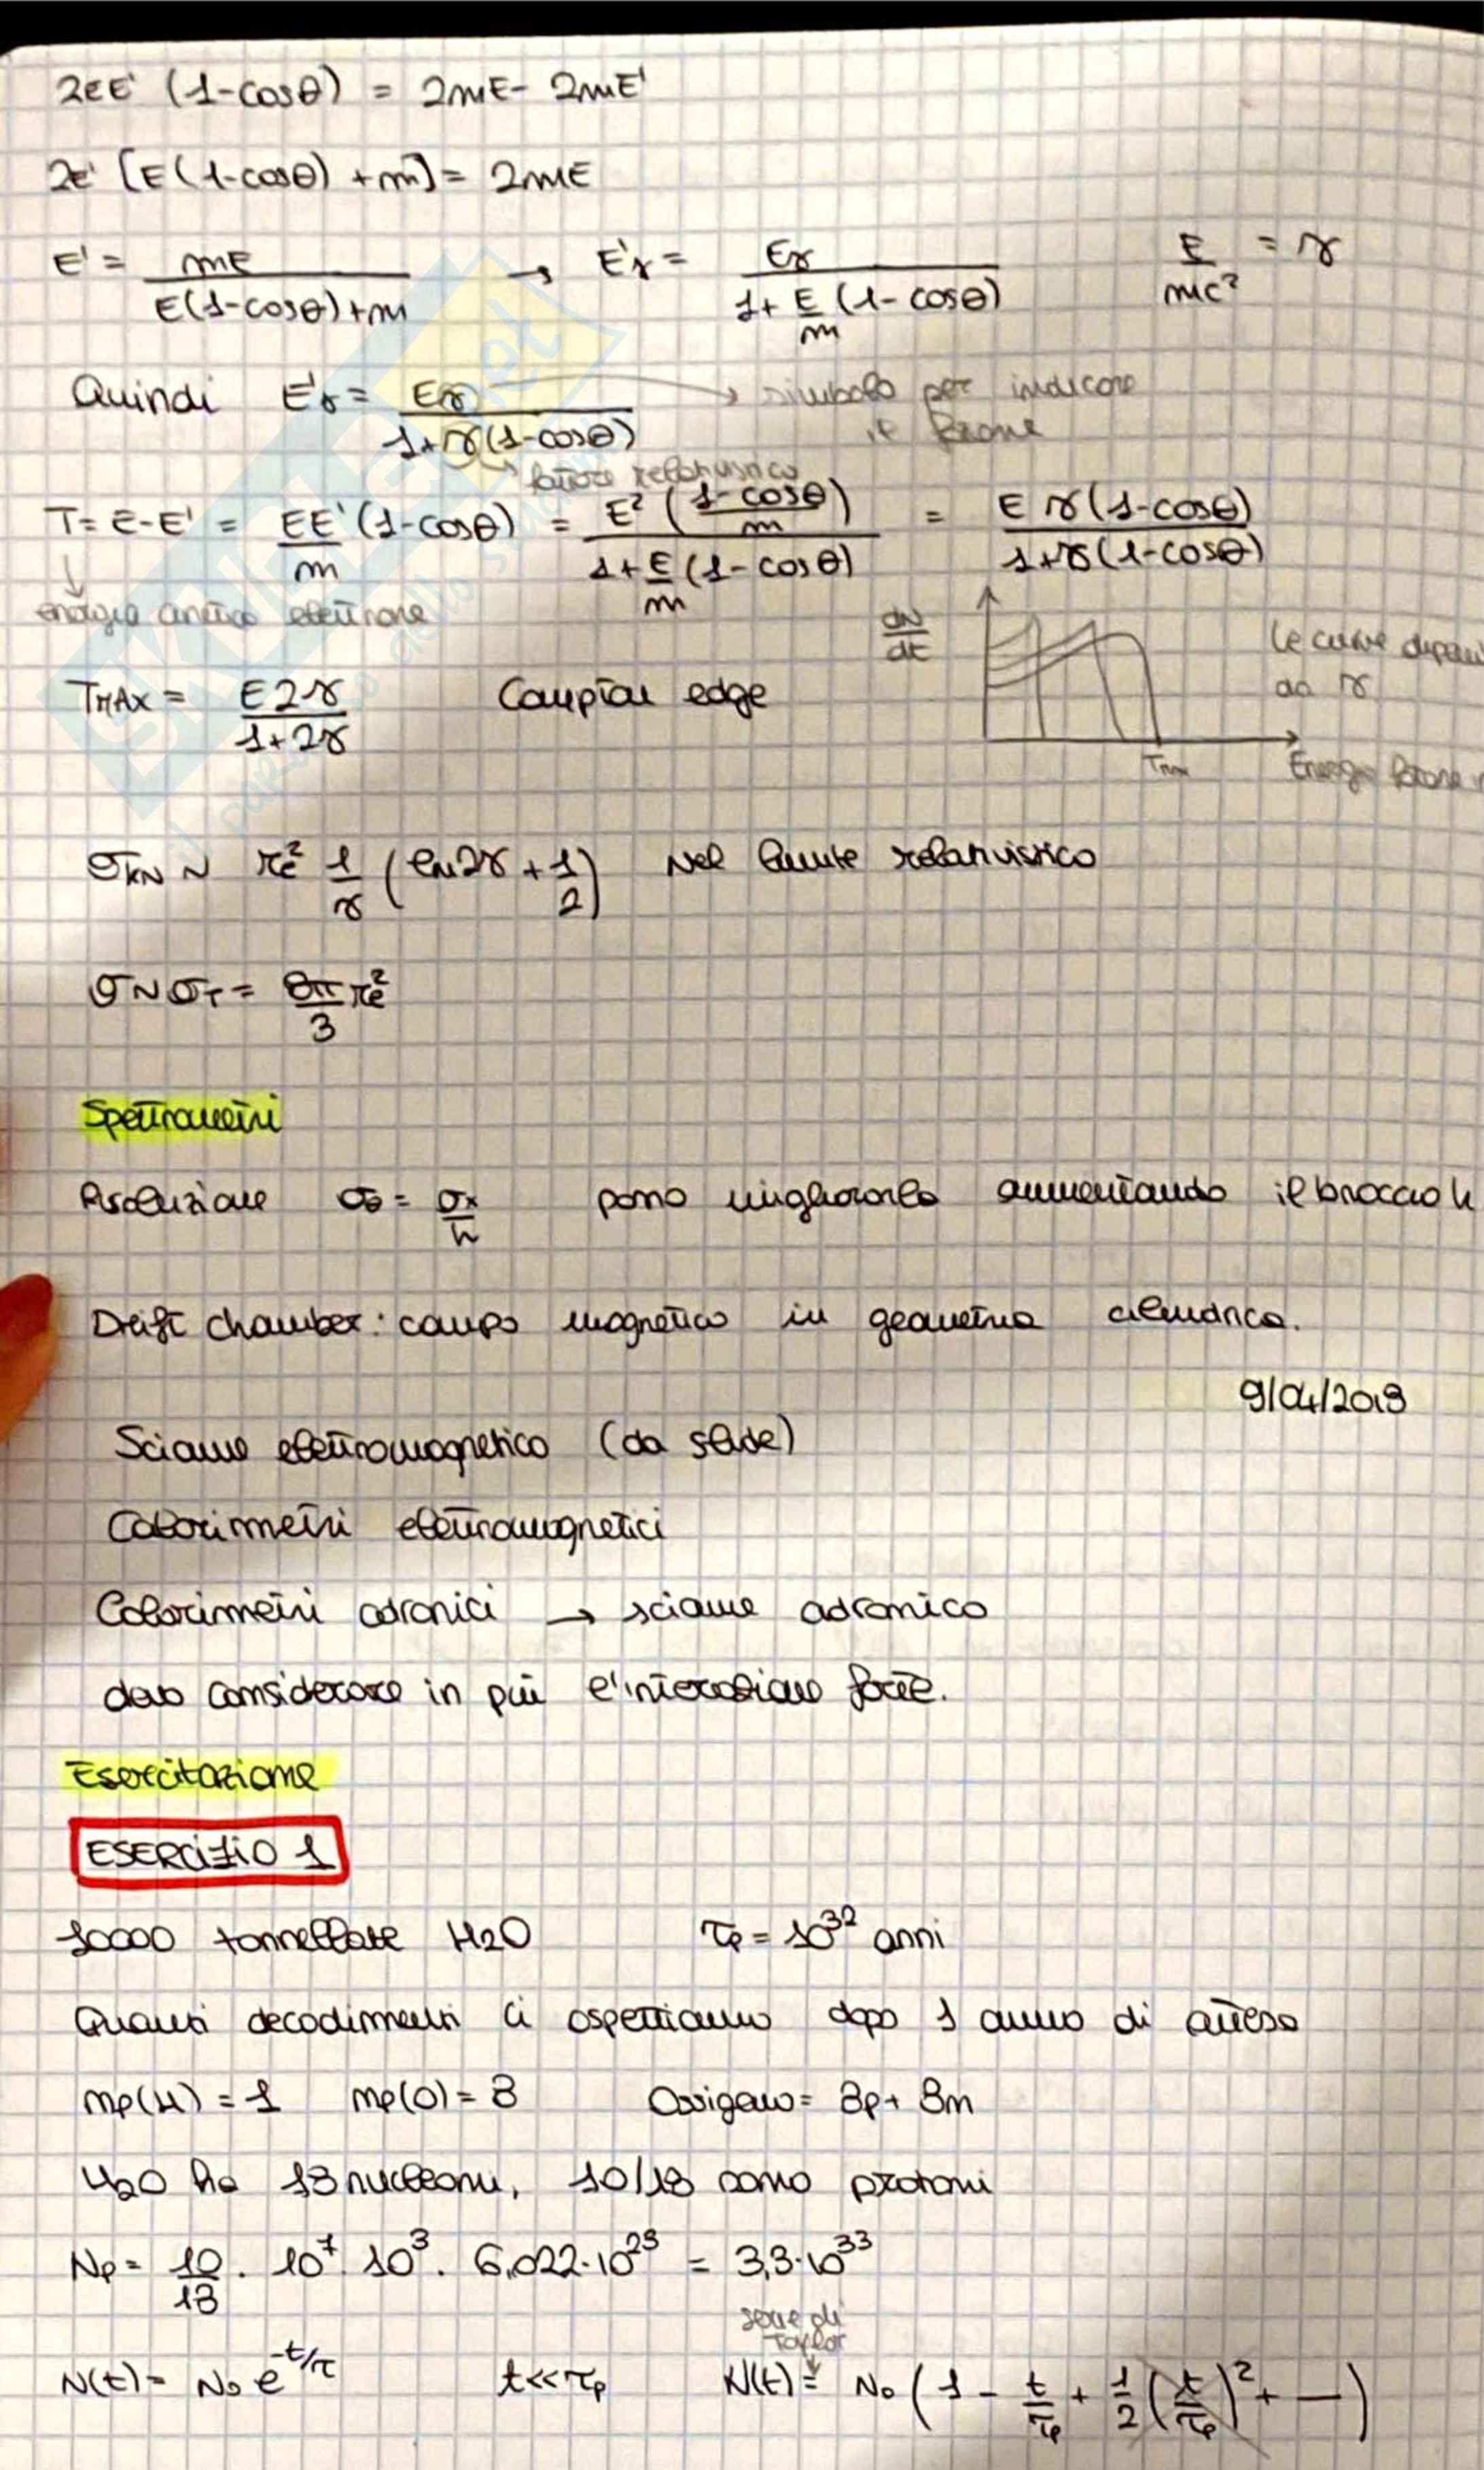 2EE' (1-cosθ) = 2mE - 2mE'
2E' [E(1-cosθ) + m] = 2mE
E' = mE / E(1-cosθ)+m → E'γ = Eγ / 1+ E/m (1-cosθ) E/mc² = γ
Quindi E'γ = Eγ / 1+γ(1-cosθ) → simbolo per indicare
il fotone
fattore relativistico
T = E-E' = EE'/m (1-cosθ) = E² (1-cosθ / m) / 1+ E/m (1-cosθ) = E γ(1-cosθ) / 1+γ(1-cosθ)
energia cinetica elettrone
dN/dt
Le curve
da γ
TMAX = E2γ / 1+2γ Compton edge
Tmax
Energia fotone
σKN ~ πre² 1/γ (ln2γ + 1/2) Nel limite relativistico
σ ~ σT = 8π/3 re²
Spettrometri
Risoluzione σθ = σx/h posso migliorarla aumentando il braccio h
Drift chamber: campo magnetico in geometria cilindrica.
9/04/2019
Sciame elettromagnetico (da slide)
Calorimetri elettromagnetici
Calorimetri adronici → sciame adronico
devo considerare in più l'interazione forte.
Esercitazione
ESERCIZIO 1
10000 tonnellate H2O τp = 10³² anni
Quanti decadimenti ci aspettiamo dopo 1 anno di attesa
mp(H) = 1 mp(O) = 8 Ossigeno = 8p + 8n
H2O ha 18 nucleoni, 10/18 sono protoni
Np = 10/18 · 10⁷ · 10³ · 6,022·10²³ = 3,3·10³³
serie di
Taylor
N(t) = N0 e^-t/τ t<<τp N(t) = N0 (1 - t/τp + 1/2 (t/τp)² + —)